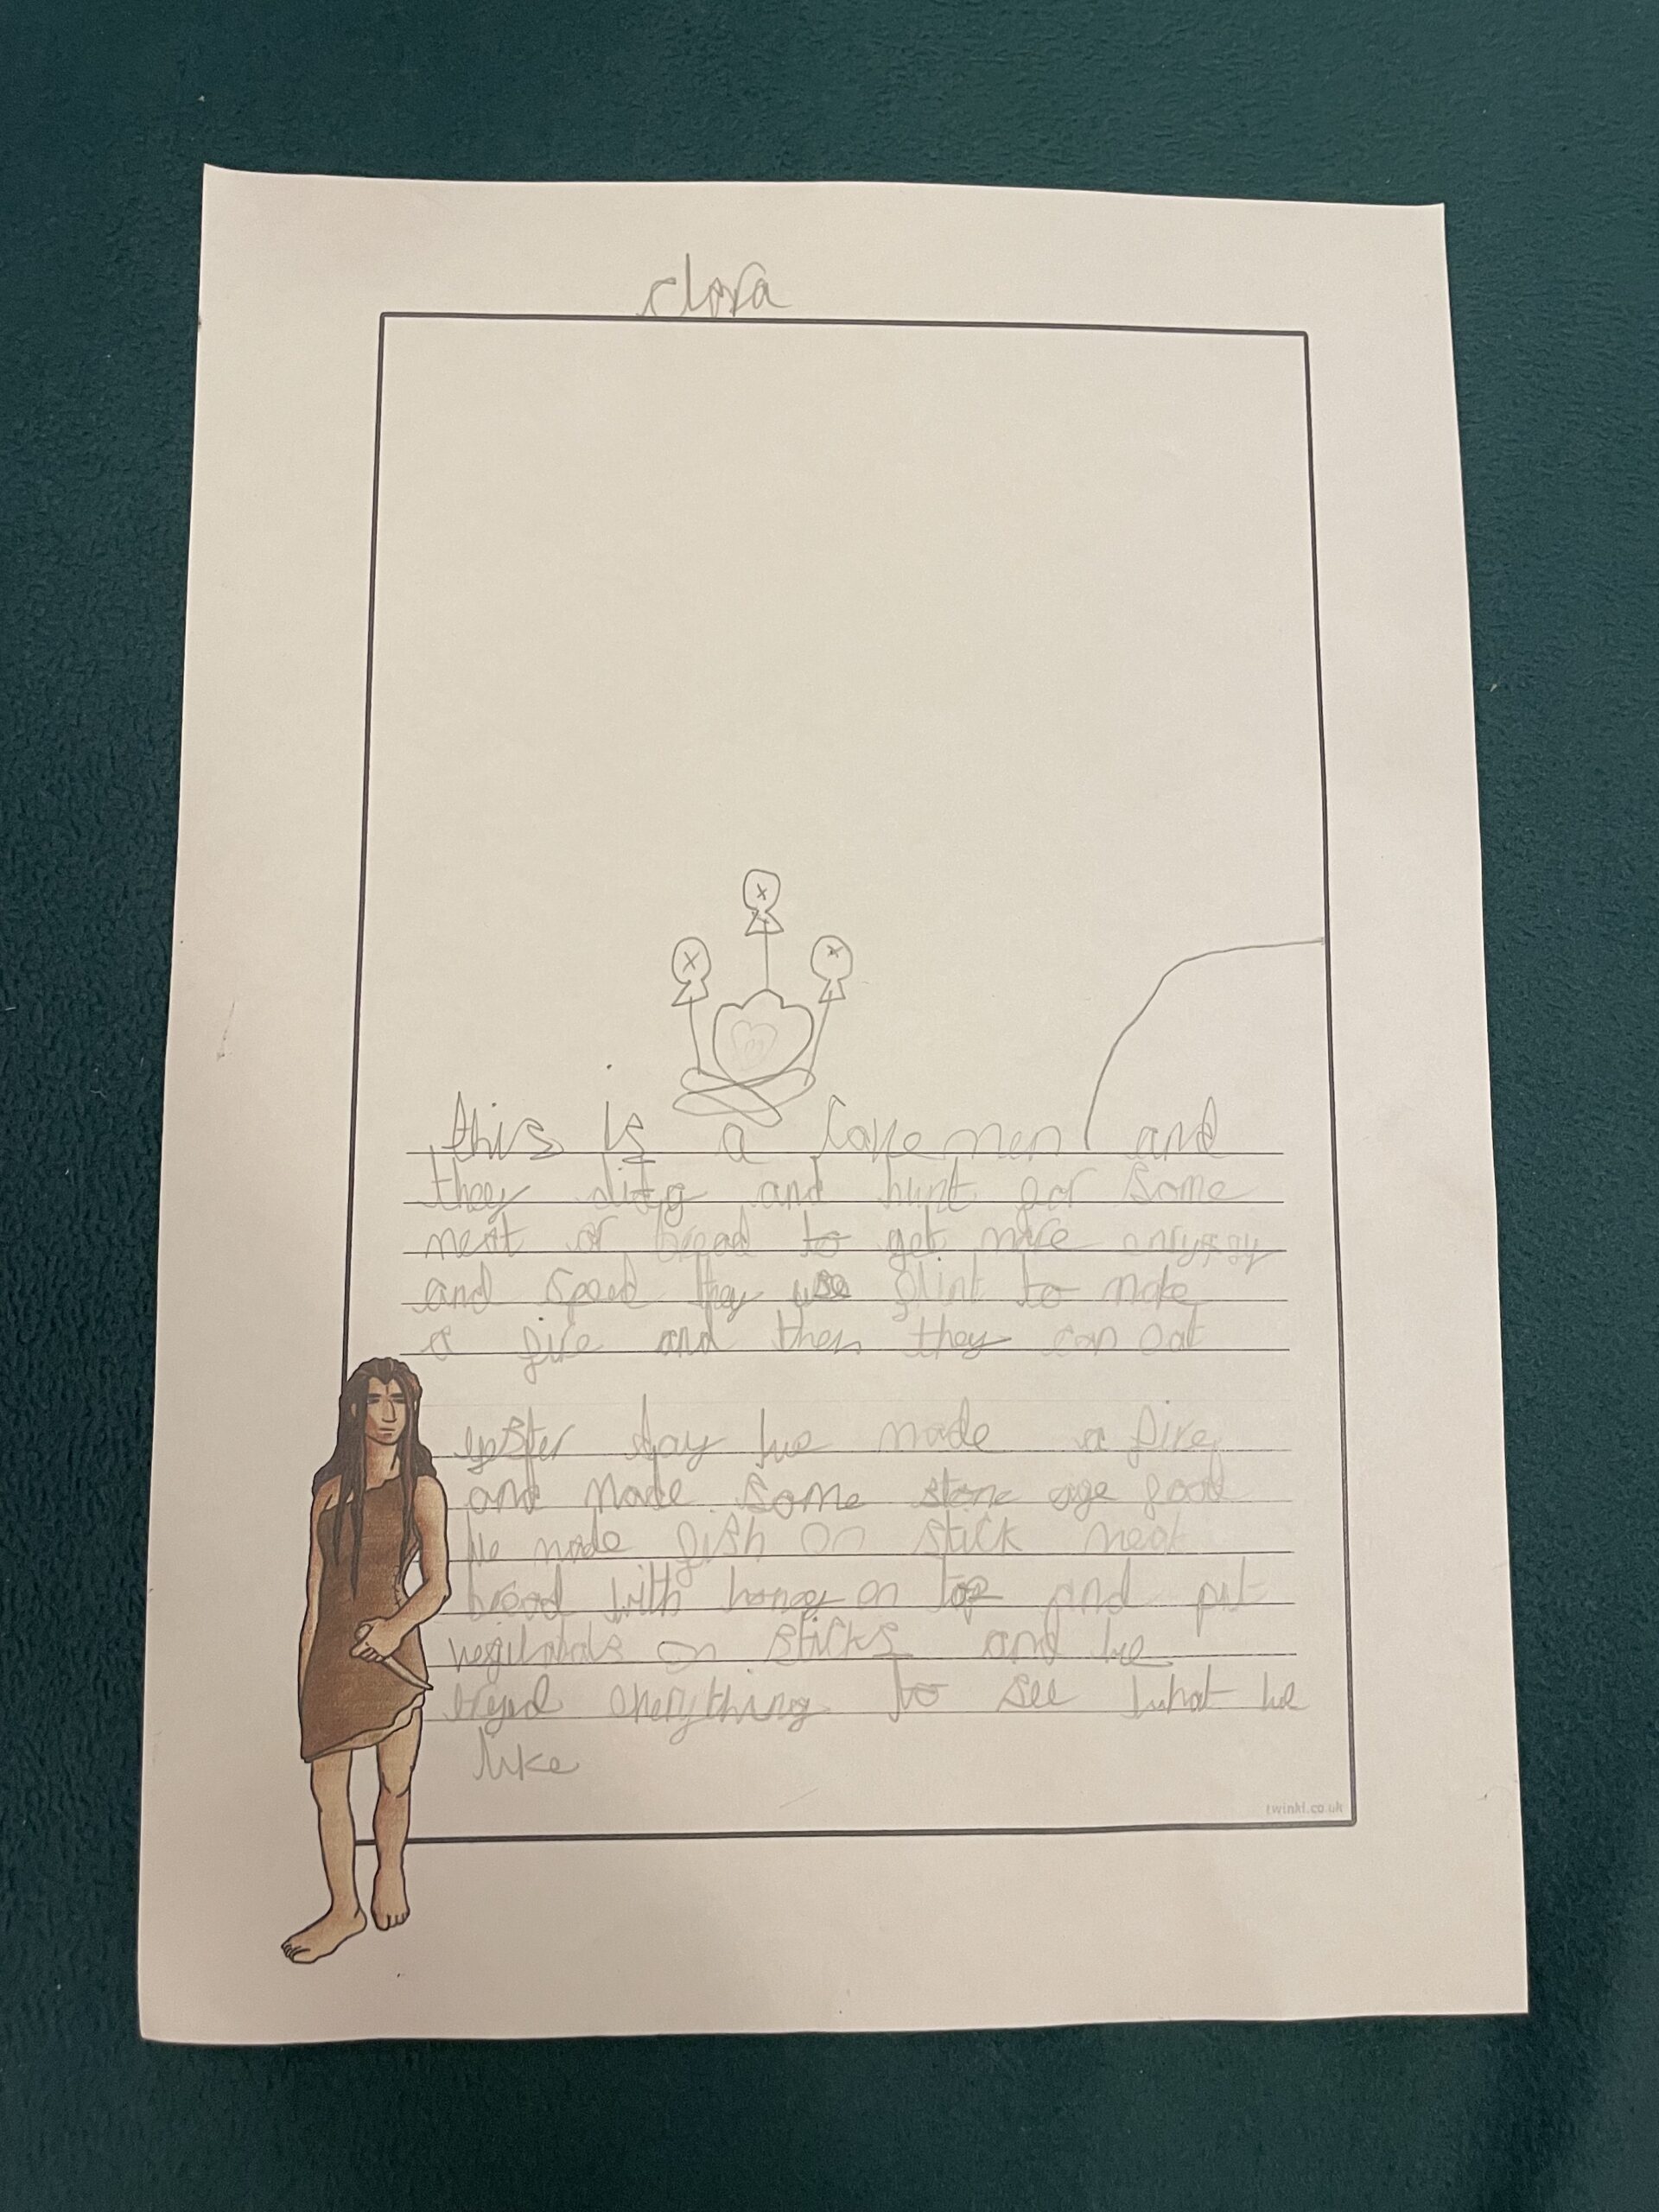 clora
this is a cavemen and
they ditg and hunt for some
meat or bread to get more
and speed they use flint to make
a fire and then they can eat
day we made a fire
and made some stone age food
We made fish on stick meat
bread with honey on top and put
on sticks and we
tryed everything to see what we
like
twinkl.co.uk